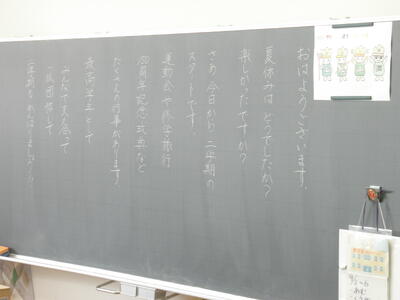 おはようございます。
夏休みはどうでしたか?
楽しかったですか?
さあ、今日から二学期の
スタートです。
運動会や修学旅行
記念式典など
たくさんの行事があります。
最高学年として
みんなで支え合って
団結して
二学期もがんばりましょう